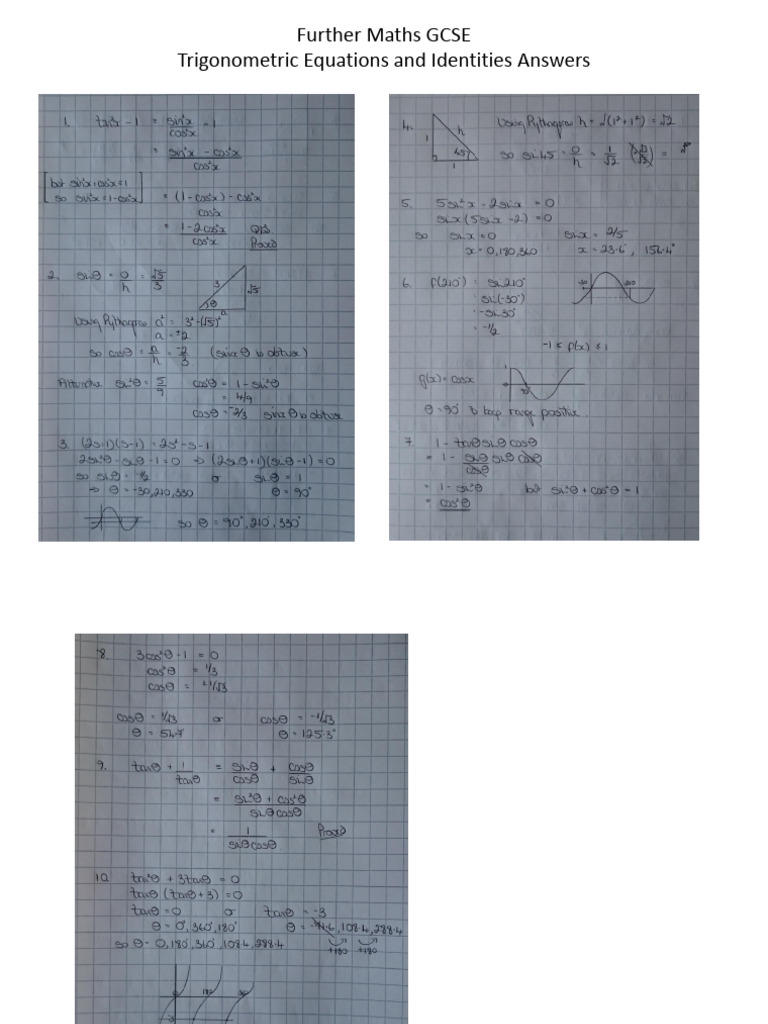 Further Maths GCSE
Trigonometric Equations and Identities Answers
1. tan²x - 1 = sin²x/cos²x - 1
= sin²x - cos²x / cos²x
[but sin²x + cos²x = 1
so sin²x = 1 - cos²x] = (1 - cos²x) - cos²x / cos²x
= 1 - 2cos²x / cos²x
Proved
2. sinθ = O/h = √5/3
3 √5 θ a
Using Pythagoras a² = 3² - (√5)²
a = ±2
so cosθ = a/h = -2/3 (since θ is obtuse)
Alternative sin²θ = 5/9 cos²θ = 1 - sin²θ
= 4/9
cosθ = -2/3 since θ is obtuse
3. (2s+1)(s-1) = 2s² - s - 1
2sin²θ - sinθ - 1 = 0 ⇒ (2sinθ+1)(sinθ-1) = 0
so sinθ = -1/2 or sinθ = 1
⇒ θ = -30, 210, 330 θ = 90°
so θ = 90°, 210°, 330°
4. Using Pythagoras h = √(1²+1²) = √2
1 h 45° 1
so sin45 = O/h = 1/√2
5. 5sin²x - 2sinx = 0
sinx(5sinx - 2) = 0
so sinx = 0 sinx = 2/5
x = 0, 180, 360 x = 23.6°, 156.4°
6. f(210°) = sin210°
= sin(-30°)
= -sin30°
= -1/2
-1 ≤ f(x) ≤ 1
g(x) = cosx
1 90
θ = 90° to keep range positive.
7. 1 - tanθ sinθ cosθ
= 1 - sinθ sinθ cosθ / cosθ
= 1 - sin²θ but sin²θ + cos²θ = 1
= cos²θ
8. 3cos²θ - 1 = 0
cos²θ = 1/3
cosθ = ±1/√3
cosθ = 1/√3 or cosθ = -1/√3
θ = 54.7 θ = 125.3°
9. tanθ + 1/tanθ = sinθ/cosθ + cosθ/sinθ
= sin²θ + cos²θ / sinθcosθ
= 1 / sinθcosθ Proved
10. tan²θ + 3tanθ = 0
tanθ (tanθ + 3) = 0
tanθ = 0 or tanθ = -3
θ = 0°, 360°, 180° θ = -71.6, 108.4, 288.4
so θ = 0, 180°, 360°, 108.4, 288.4 +180 +180